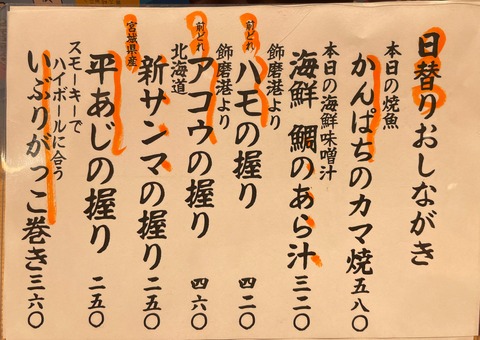 日替りおしながき
本日の焼魚
かんぱちのカマ焼 五八〇
本日の海鮮味噌汁
海鮮 鯛のあら汁 三二〇
前どれ
飾磨港より
ハモの握り 四二〇
前どれ
飾磨港より
アコウの握り 四六〇
北海道
新サンマの握り 二五〇
宮城県産
平あじの握り 二五〇
スモーキーで
ハイボールに合う
いぶりがっこ巻き 三六〇